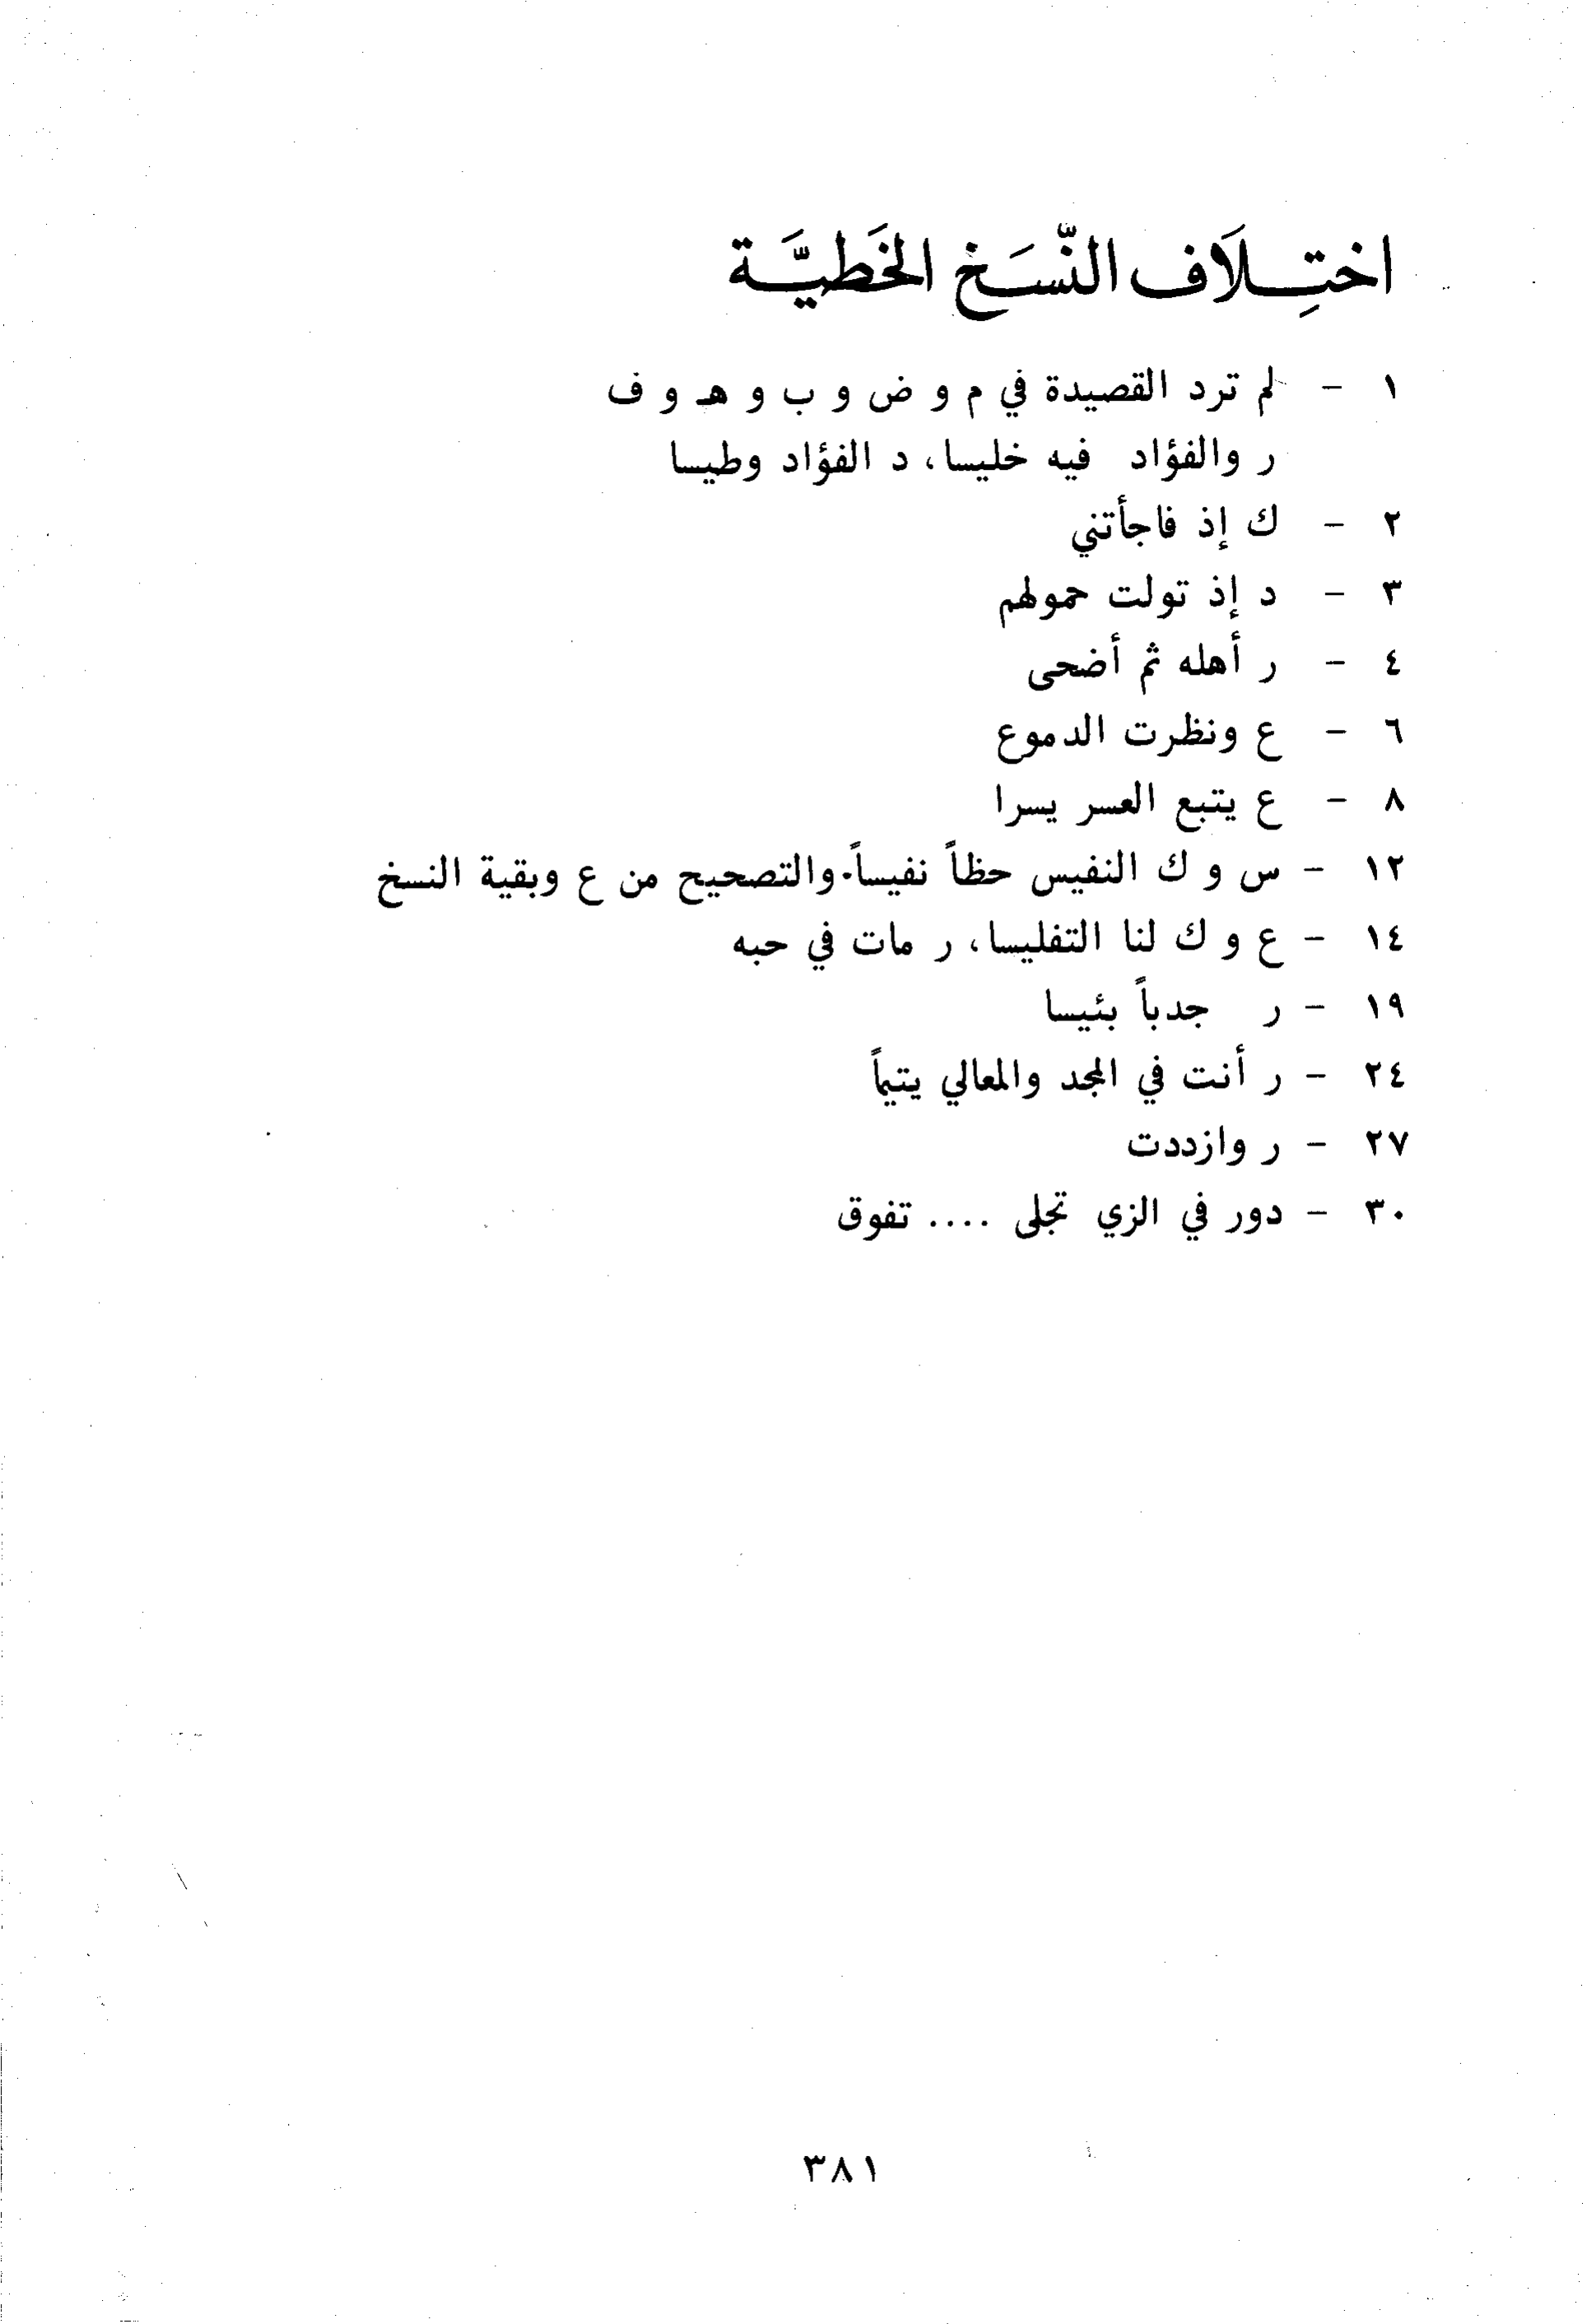 اختِلَاف النّسَخ الخَطيَّة
١ - لم ترد القصيدة في م و ض و ب و هـ و ف
ر والفؤاد فيه خليسا، د الفؤاد وطيسا
٢ - ك إذ فاجأتني
٣ - د إذ تولت حمولهم
٤ - ر أهله ثم أضحى
٦ - ع ونظرت الدموع
٨ - ع يتبع العسر يسرا
١٢ - س و ك النفيس حظاً نفيساً. والتصحيح من ع وبقية النسخ
١٤ - ع و ك لنا التفليسا، ر مات في حبه
١٩ - ر جدباً بئيسا
٢٤ - ر أنت في المجد والمعالي يتيماً
٢٧ - ر وازددت
٣٠ - دور في الزي تجلى .... تفوق
٣٨١